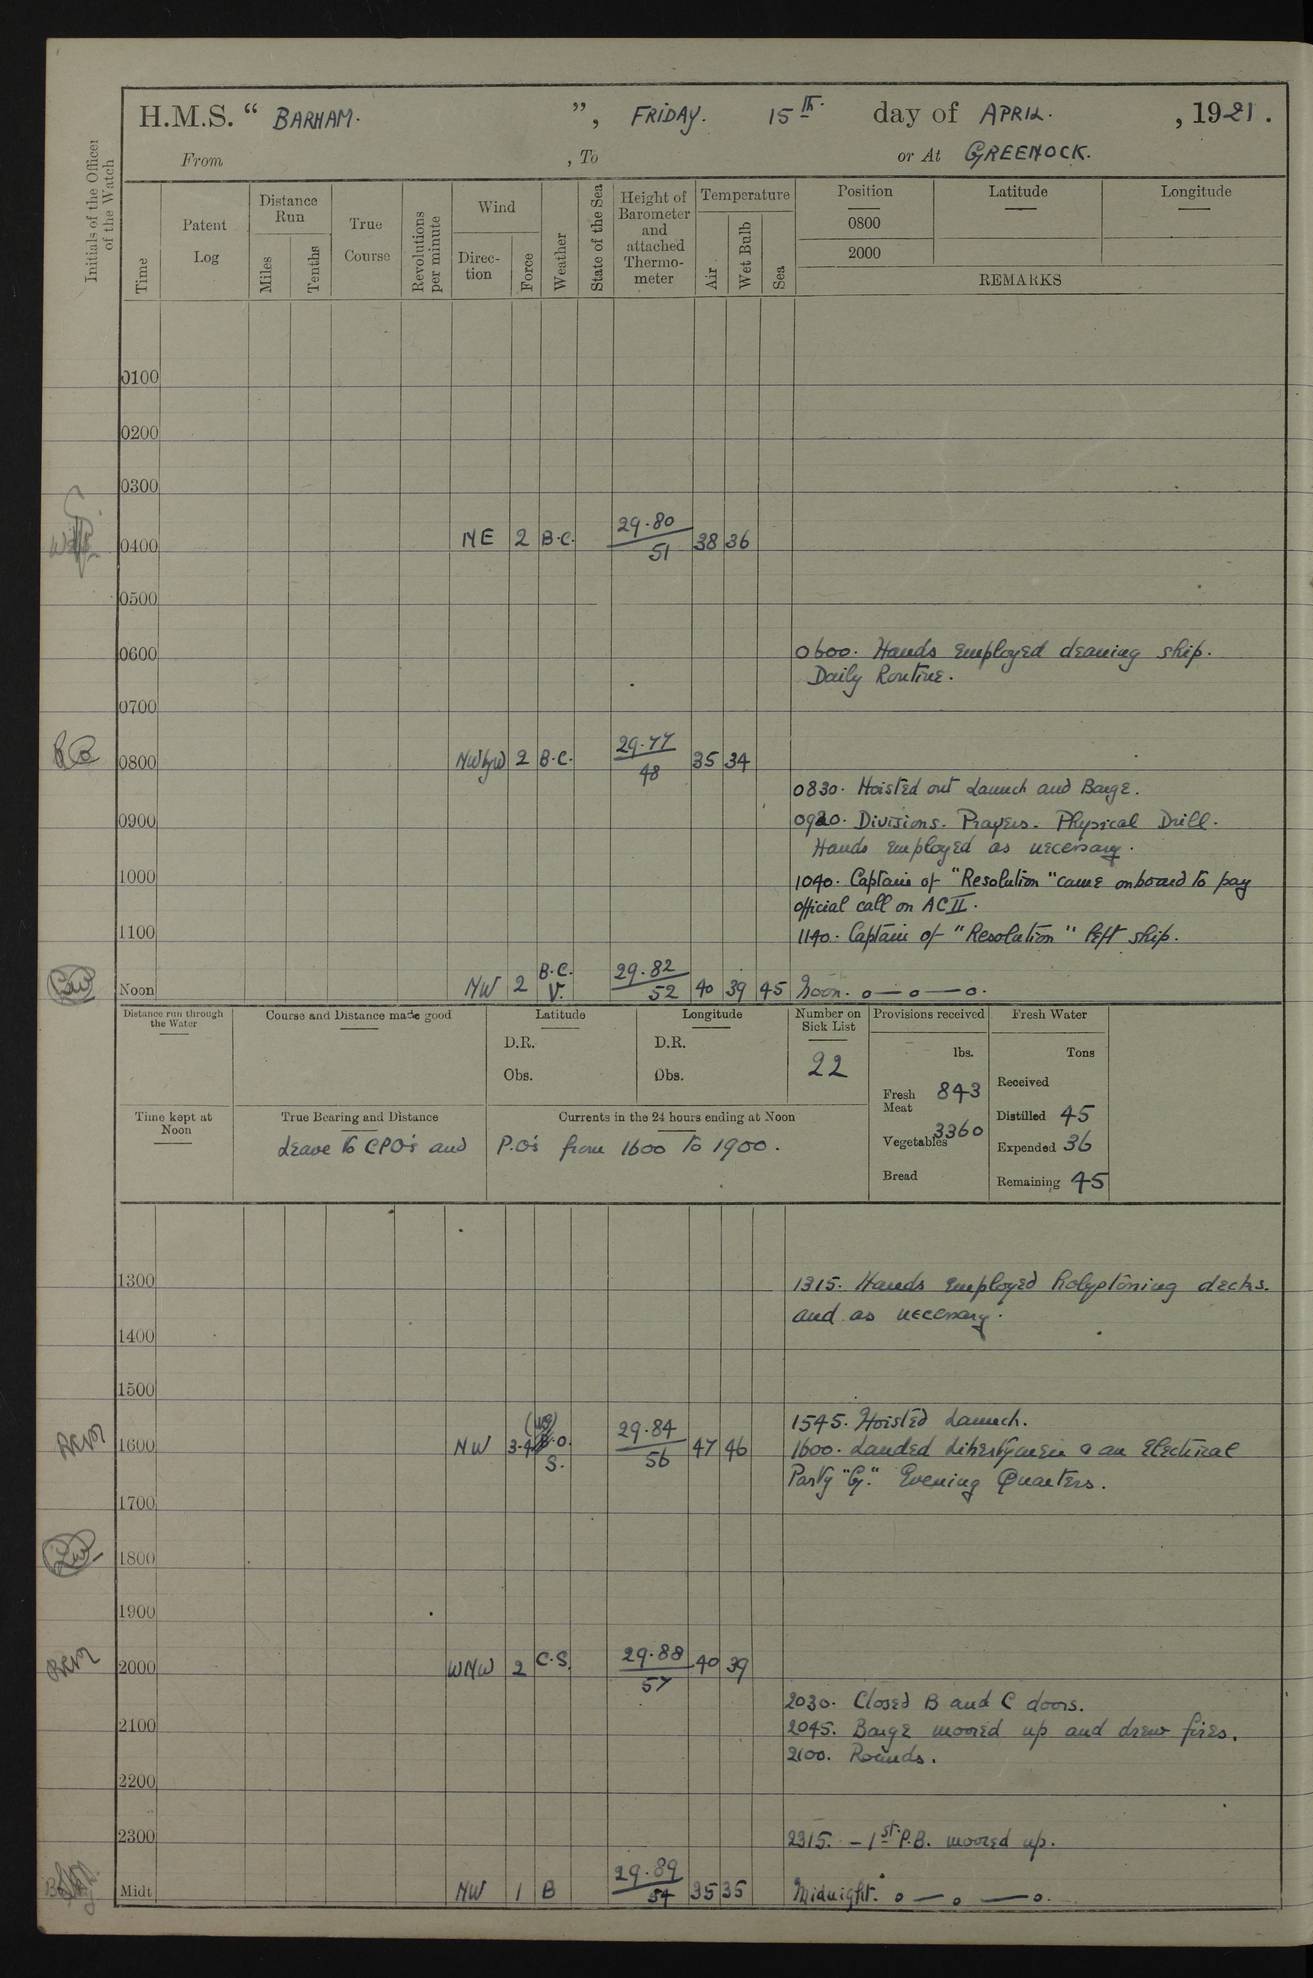 H.M.S. “ BARHAM. ”, FRIDAY. 15th. day of APRIL. , 1921.
From , To or At GREENOCK.
Initials of the Officer of the Watch
Time
Patent Log
Distance Run
Miles
Tenths
True Course
Revolutions per minute
Wind
Direction
Force
Weather
State of the Sea
Height of Barometer and attached Thermometer
Temperature
Air
Wet Bulb
Sea
Position
Latitude
Longitude
0800
2000
REMARKS
0100
0200
0300
0400 NE 2 B.C. 29.80 51 38 36
0500
0600 0600. Hands employed cleaning ship.
Daily Routine.
0700
0800 NWbyW 2 B.C. 29.77 48 35 34
0830. Hoisted out Launch and Barge.
0900 0920. Divisions. Prayers. Physical Drill.
Hands employed as necessary.
1000 1040. Captain of "Resolution" came onboard to pay
official call on AC II.
1100 1140. Captain of "Resolution" left ship.
Noon NW 2 B.C. V. 29.82 52 40 39 45 Noon. o—o—o.
Distance run through the Water
Course and Distance made good
Latitude
D.R.
Obs.
Longitude
D.R.
Obs.
Number on Sick List
22
Provisions received
lbs.
Fresh Meat 843
Vegetables 3360
Bread
Fresh Water
Tons
Received
Distilled 45
Expended 36
Remaining 45
Time kept at Noon
True Bearing and Distance
Currents in the 24 hours ending at Noon
Leave to CPO's and P.O's from 1600 to 1900.
1300 1315. Hands employed holystoning decks.
and as necessary.
1400
1500
1545. Hoisted Launch.
1600 NW 3-4 B.O. S. 29.84 56 47 46 1600. Landed Libertymen & an Electrical
Party "G". Evening Quarters.
1700
1800
1900
2000 WNW 2 C.S. 29.88 57 40 39
2030. Closed B and C doors.
2100 2045. Barge moored up and drew fires.
2100. Rounds.
2200
2300 2315. – 1st P.B. moored up.
Midt NW 1 B 29.89 54 35 35 Midnight. o — o — o.